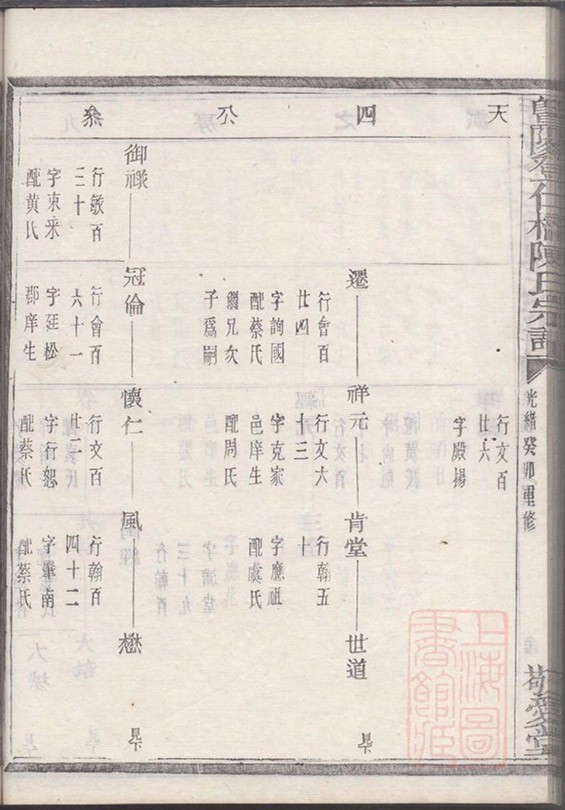 暨陽
仁橋陳氏宗譜
光緒癸卯重修
敬愛堂
上海圖
書館藏
天 四 公 叅
行文百
廿六
字殿揚
遷 祥元 肯堂 世道
行會百
廿四
字詢國
配蔡氏
繼兄次
子為嗣
行文六
十三
字克家
邑庠生
配周氏
行翰五
十
字應祖
配虞氏
見下
御祿 冠倫 懷仁 風 懋
行敏百
三十
字束釆
配黄氏
行會百
六十一
字廷松
郡庠生
行文百
廿二
字行恕
配蔡氏
行翰百
四十二
字肇南
配蔡氏
見下